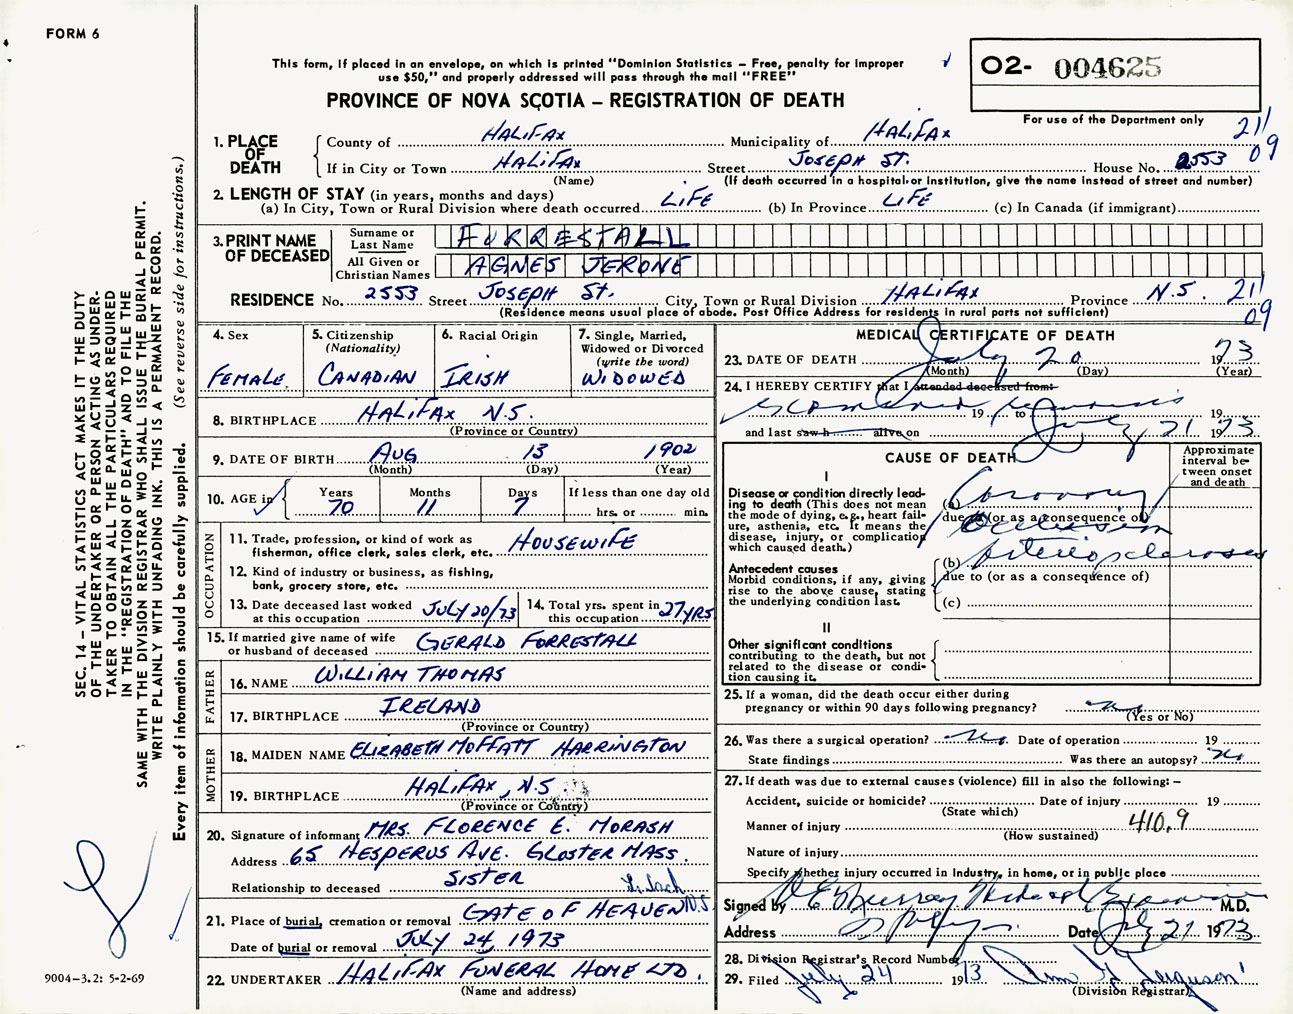 FORM 6
This form, if placed in an envelope, on which is printed "Dominion Statistics – Free, penalty for improper
use $50," and properly addressed will pass through the mail "FREE"
O2- 004625
PROVINCE OF NOVA SCOTIA – REGISTRATION OF DEATH
For use of the Department only
211
09
1. PLACE OF DEATH
County of HALIFAX Municipality of HALIFAX
If in City or Town HALIFAX Street JOSEPH ST. House No. 2553
(Name) (If death occurred in a hospital or institution, give the name instead of street and number)
2. LENGTH OF STAY (in years, months and days)
(a) In City, Town or Rural Division where death occurred LIFE (b) In Province LIFE (c) In Canada (if immigrant)
3. PRINT NAME OF DECEASED
Surname or Last Name FORRESTALL
All Given or Christian Names AGNES JEROME
RESIDENCE No. 2553 Street JOSEPH ST. City, Town or Rural Division HALIFAX Province N.S. 211
09
(Residence means usual place of abode. Post Office Address for residents in rural parts not sufficient)
4. Sex
FEMALE
5. Citizenship
(Nationality)
CANADIAN
6. Racial Origin
IRISH
7. Single, Married,
Widowed or Divorced
(write the word)
WIDOWED
8. BIRTHPLACE HALIFAX N.S.
(Province or Country)
9. DATE OF BIRTH AUG 13 1902
(Month) (Day) (Year)
10. AGE in Years Months Days If less than one day old
70 11 7 hrs. or min.
OCCUPATION
11. Trade, profession, or kind of work as
fisherman, office clerk, sales clerk, etc. HOUSEWIFE
12. Kind of industry or business, as fishing,
bank, grocery store, etc.
13. Date deceased last worked
at this occupation JULY 20/73
14. Total yrs. spent in
this occupation 27 YRS
15. If married give name of wife
or husband of deceased GERALD FORRESTALL
FATHER
16. NAME WILLIAM THOMAS
17. BIRTHPLACE IRELAND
(Province or Country)
MOTHER
18. MAIDEN NAME ELIZABETH MOFFATT HARRINGTON
19. BIRTHPLACE HALIFAX, N.S
(Province or Country)
20. Signature of informant MRS. FLORENCE E. MORASH
Address 65 HESPERUS AVE. GLOSTER MASS.
Relationship to deceased SISTER
21. Place of burial, cremation or removal GATE OF HEAVEN N.S
Date of burial or removal JULY 24, 1973
22. UNDERTAKER HALIFAX FUNERAL HOME LTD.
(Name and address)
MEDICAL CERTIFICATE OF DEATH
23. DATE OF DEATH July 20 1973
(Month) (Day) (Year)
24. I HEREBY CERTIFY that I attended deceased from:
examined remains 19 to 19
and last saw h alive on July 21 1973
CAUSE OF DEATH
Approximate
interval be-
tween onset
and death
I
Disease or condition directly lead-
ing to death (This does not mean
the mode of dying, e.g., heart fail-
ure, asthenia, etc. It means the
disease, injury, or complication
which caused death.)
(a) Coronary
due to (or as a consequence of)
occlusion
(b) Arteriosclerosis
Antecedent causes
Morbid conditions, if any, giving
rise to the above cause, stating
the underlying condition last.
due to (or as a consequence of)
(c)
II
Other significant conditions
contributing to the death, but not
related to the disease or condi-
tion causing it.
25. If a woman, did the death occur either during
pregnancy or within 90 days following pregnancy? no
(Yes or No)
26. Was there a surgical operation? No Date of operation 19
State findings Was there an autopsy? No
27. If death was due to external causes (violence) fill in also the following:–
Accident, suicide or homicide? Date of injury 19
(State which)
Manner of injury 410.9
(How sustained)
Nature of injury
Specify whether injury occurred in industry, in home, or in public place
Signed by Murray Medical Examiner M.D.
Address Date July 21 1973
28. Division Registrar's Record Number
29. Filed July 24 1973 Ferguson
(Division Registrar)
SEC. 14 – VITAL STATISTICS ACT MAKES IT THE DUTY
OF THE UNDERTAKER OR PERSON ACTING AS UNDER-
TAKER TO OBTAIN ALL THE PARTICULARS REQUIRED
IN THE "REGISTRATION OF DEATH" AND TO FILE THE
SAME WITH THE DIVISION REGISTRAR WHO SHALL ISSUE THE BURIAL PERMIT.
WRITE PLAINLY WITH UNFADING INK. THIS IS A PERMANENT RECORD.
Every item of information should be carefully supplied. (See reverse side for instructions.)
9004–3.2: 5-2-69